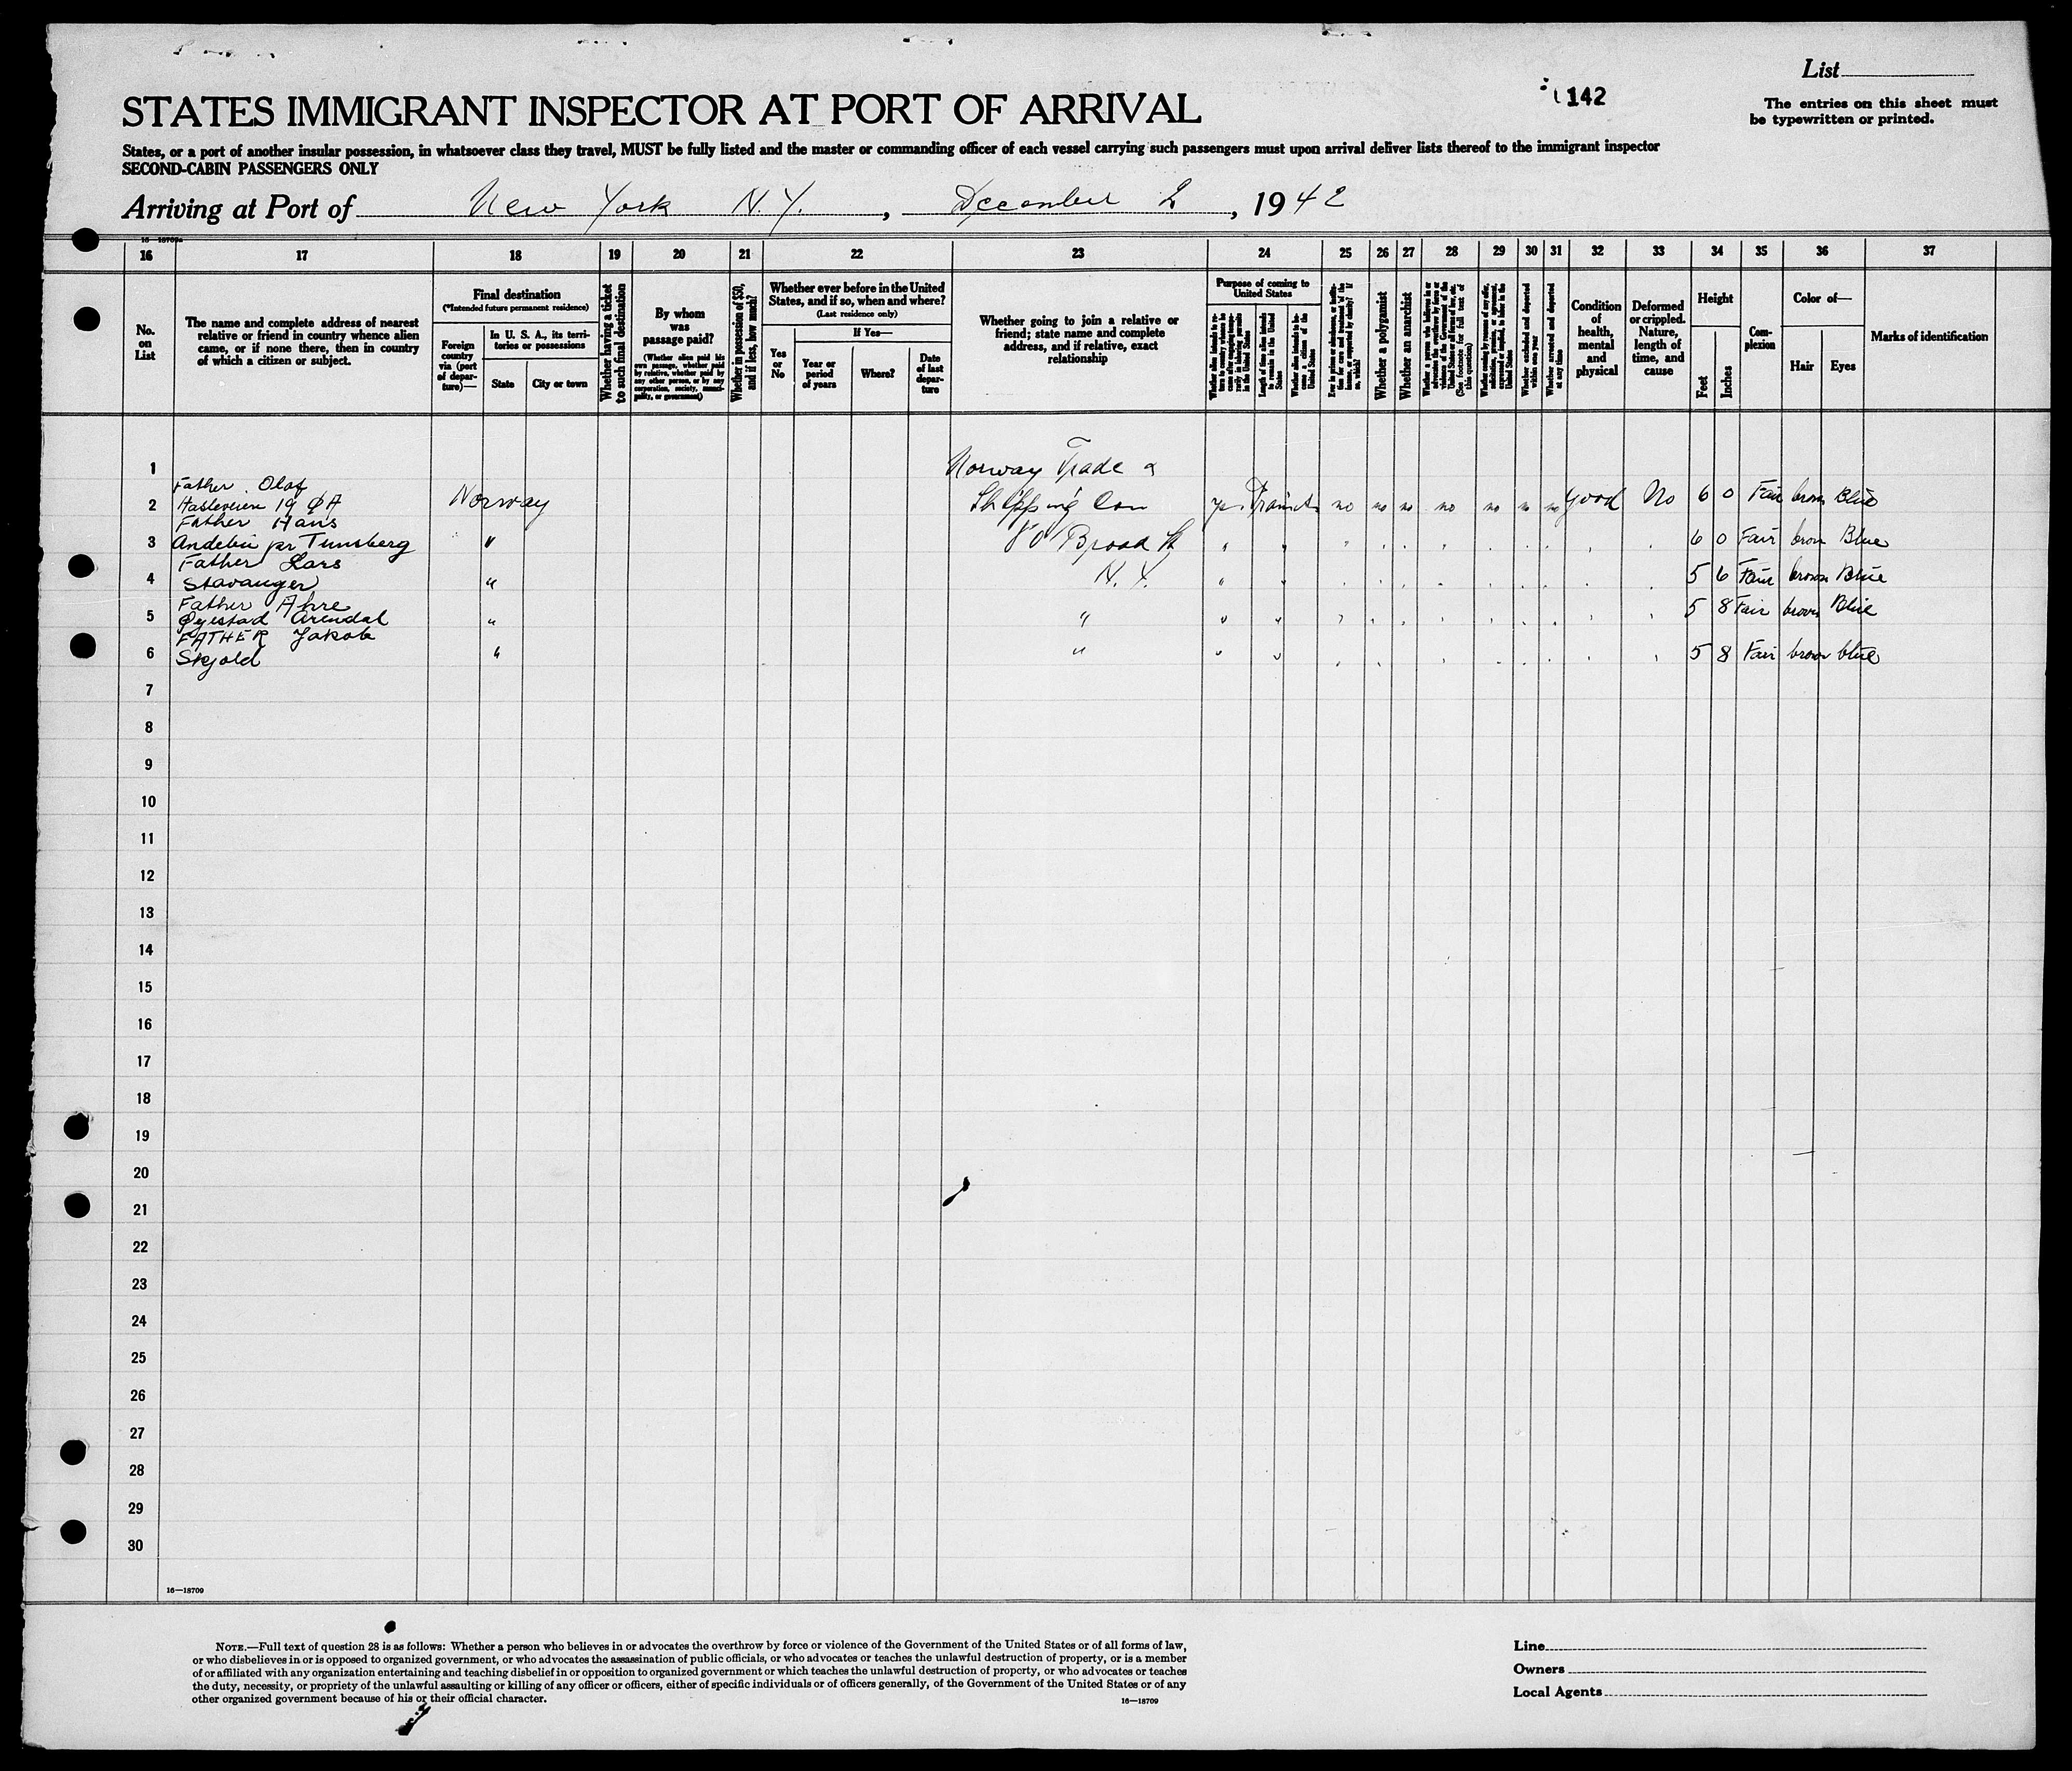 List
142
The entries on this sheet must
be typewritten or printed.
STATES IMMIGRANT INSPECTOR AT PORT OF ARRIVAL
States, or a port of another insular possession, in whatsoever class they travel, MUST be fully listed and the master or commanding officer of each vessel carrying such passengers must upon arrival deliver lists thereof to the immigrant inspector
SECOND-CABIN PASSENGERS ONLY
Arriving at Port of New York N.Y., December 2, 1942
16—18709a
16 17 18 19 20 21 22 23 24 25 26 27 28 29 30 31 32 33 34 35 36 37
No.
on
List
The name and complete address of nearest
relative or friend in country whence alien
came, or if none there, then in country
of which a citizen or subject.
Final destination
(*Intended future permanent residence)
Foreign
country
via (port
of depar-
ture)—
In U. S. A., its terri-
tories or possessions
State
City or town
Whether having a ticket
to such final destination
By whom
was
passage paid?
(Whether alien paid his
own passage, whether paid
by relative, whether paid by
any other person, or by any
corporation, society, munici-
pality, or government)
Whether in possession of $50,
and if less, how much?
Whether ever before in the United
States, and if so, when and where?
(Last residence only)
Yes
or
No
If Yes—
Year or
period
of years
Where?
Date
of last
depar-
ture
Whether going to join a relative or
friend; state name and complete
address, and if relative, exact
relationship
Purpose of coming to
United States
Whether a polygamist
Whether an anarchist
Whether excluded and deported
within one year
Whether arrested and deported
at any time
Condition
of
health,
mental
and
physical
Deformed
or crippled.
Nature,
length of
time, and
cause
Height
Feet
Inches
Com-
plexion
Color of—
Hair
Eyes
Marks of identification
1 Norway Trade &
Father Olof
2 19 Norway Shipping Transit no no no no no no no good No 6 0 Fair brown Blue
Father Hans
3 Andebu pr Tunsberg " 80 Broad St " " " 6 0 Fair brown Blue
Father Lars
4 Stavanger " N.Y. " " 5 6 Fair brown Blue
Father
5 Øyestad Arendal " " " " 5 8 Fair brown Blue
FATHER Jakob
6 Skjold " " " " 5 8 Fair brown blue
7
8
9
10
11
12
13
14
15
16
17
18
19
20
21
22
23
24
25
26
27
28
29
30
16—18709
NOTE.—Full text of question 28 is as follows: Whether a person who believes in or advocates the overthrow by force or violence of the Government of the United States or of all forms of law,
or who disbelieves in or is opposed to organized government, or who advocates the assassination of public officials, or who advocates or teaches the unlawful destruction of property, or is a member
of or affiliated with any organization entertaining and teaching disbelief in or opposition to organized government or which teaches the unlawful destruction of property, or who advocates or teaches
the duty, necessity, or propriety of the unlawful assaulting or killing of any officer or officers, either of specific individuals or of officers generally, of the Government of the United States or of any
other organized government because of his or their official character.
16—18709
Line
Owners
Local Agents